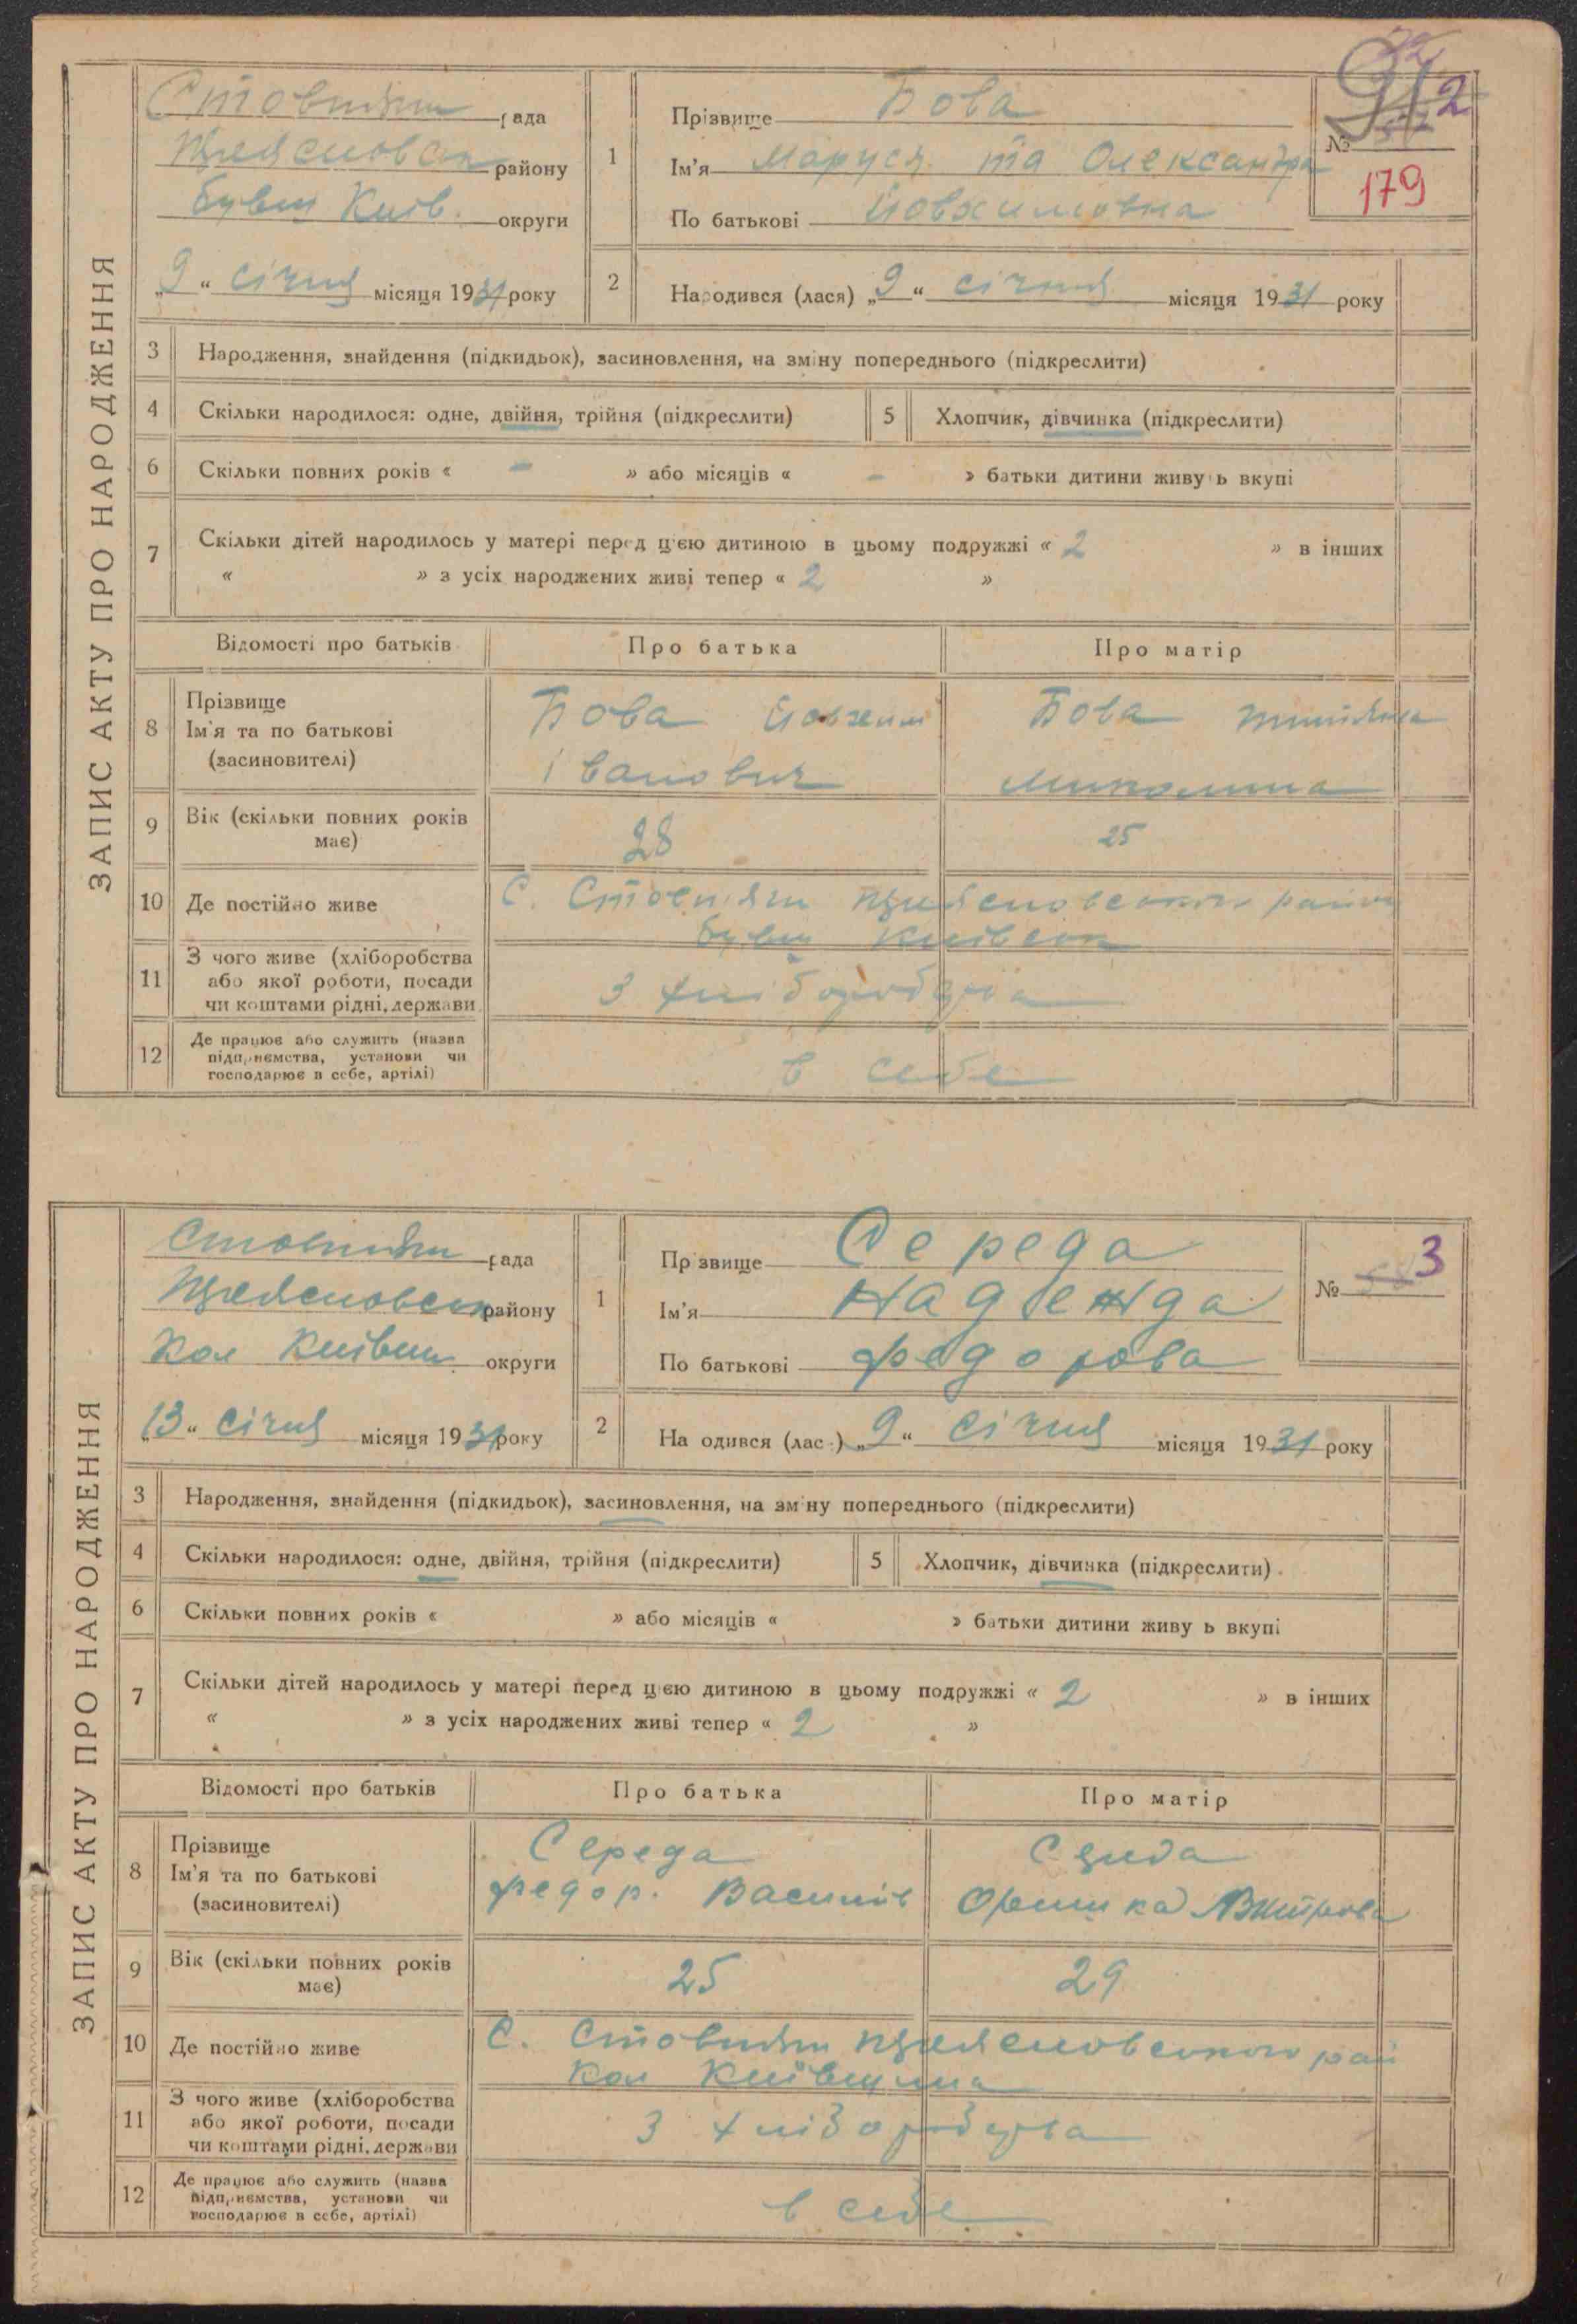 ЗАПИС АКТУ ПРО НАРОДЖЕННЯ
рада
району
бувш Київ. округи
„9“ січня місяця 1931 року
1
Прізвище Бова
Ім'я Маруся та Олександра
По батькові Йовхимовна
№ 2
179
2
Народився (лася) „9“ січня місяця 1931 року
3 Народження, знайдення (підкидьок), засиновлення, на зміну попереднього (підкреслити)
4 Скільки народилося: одне, двійня, трійня (підкреслити)
5 Хлопчик, дівчинка (підкреслити)
6 Скільки повних років « - » або місяців « - » батьки дитини живуть вкупі
7 Скільки дітей народилось у матері перед цією дитиною в цьому подружжі « 2 » в інших
« » з усіх народжених живі тепер « 2 »
Відомості про батьків Про батька Про матір
8 Прізвище
Ім'я та по батькові
(засиновителі)
Бова Йовхим
Іванович
Бова
9 Вік (скільки повних років
має)
28 25
10 Де постійно живе
С. району
бувш
11 З чого живе (хліборобства
або якої роботи, посади
чи коштами рідні, держави
З хліборобства
12 Де працює або служить (назва
підприємства, установи чи
господарює в себе, артілі)
в себе
ЗАПИС АКТУ ПРО НАРОДЖЕННЯ
рада
району
кол округи
„13“ січня місяця 1931 року
1
Прізвище Середа
Ім'я Надежда
По батькові Федорова
№ 3
2
Народився (лась) „9“ січня місяця 1931 року
3 Народження, знайдення (підкидьок), засиновлення, на зміну попереднього (підкреслити)
4 Скільки народилося: одне, двійня, трійня (підкреслити)
5 Хлопчик, дівчинка (підкреслити)
6 Скільки повних років « » або місяців « » батьки дитини живуть вкупі
7 Скільки дітей народилось у матері перед цією дитиною в цьому подружжі « 2 » в інших
« » з усіх народжених живі тепер « 2 »
Відомості про батьків Про батька Про матір
8 Прізвище
Ім'я та по батькові
(засиновителі)
Середа
Федор.
9 Вік (скільки повних років
має)
25 29
10 Де постійно живе
С. рай
кол Київщина
11 З чого живе (хліборобства
або якої роботи, посади
чи коштами рідні, держави
З хліборобства
12 Де працює або служить (назва
підприємства, установи чи
господарює в себе, артілі)
в себе